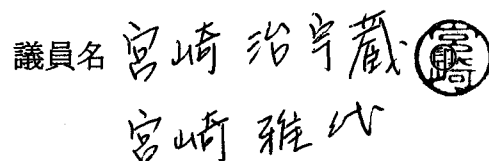 議員名 宮崎 治宇蔵 宮崎
宮崎 雅代